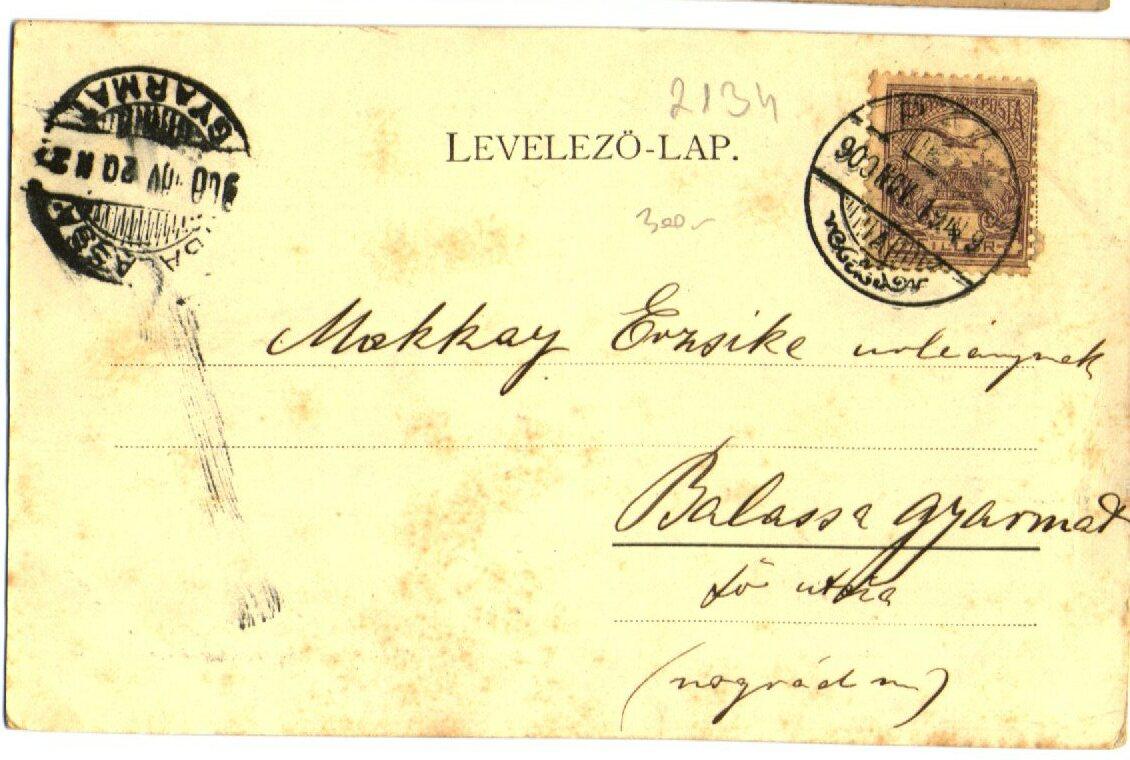 2134
LEVELEZŐ-LAP.
GYARMAT
900 NOV 20 N 2
900 NOV. 19
300-
Makkay Erzsike urleánynek
Balassa gyarmat
Fő utca
(nográd m)